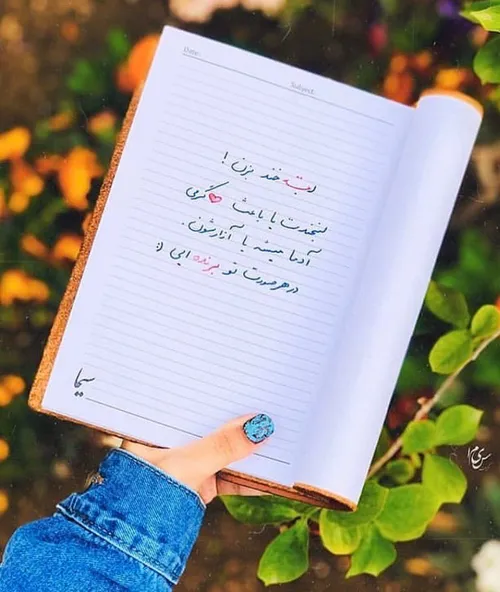 Date:
Subject:
لبخند بزن !
لبخندت یا باعث ❤ گرمی
آدما میشه یا آزارشون .
در هر صورت تو برنده ایی :)
سیما